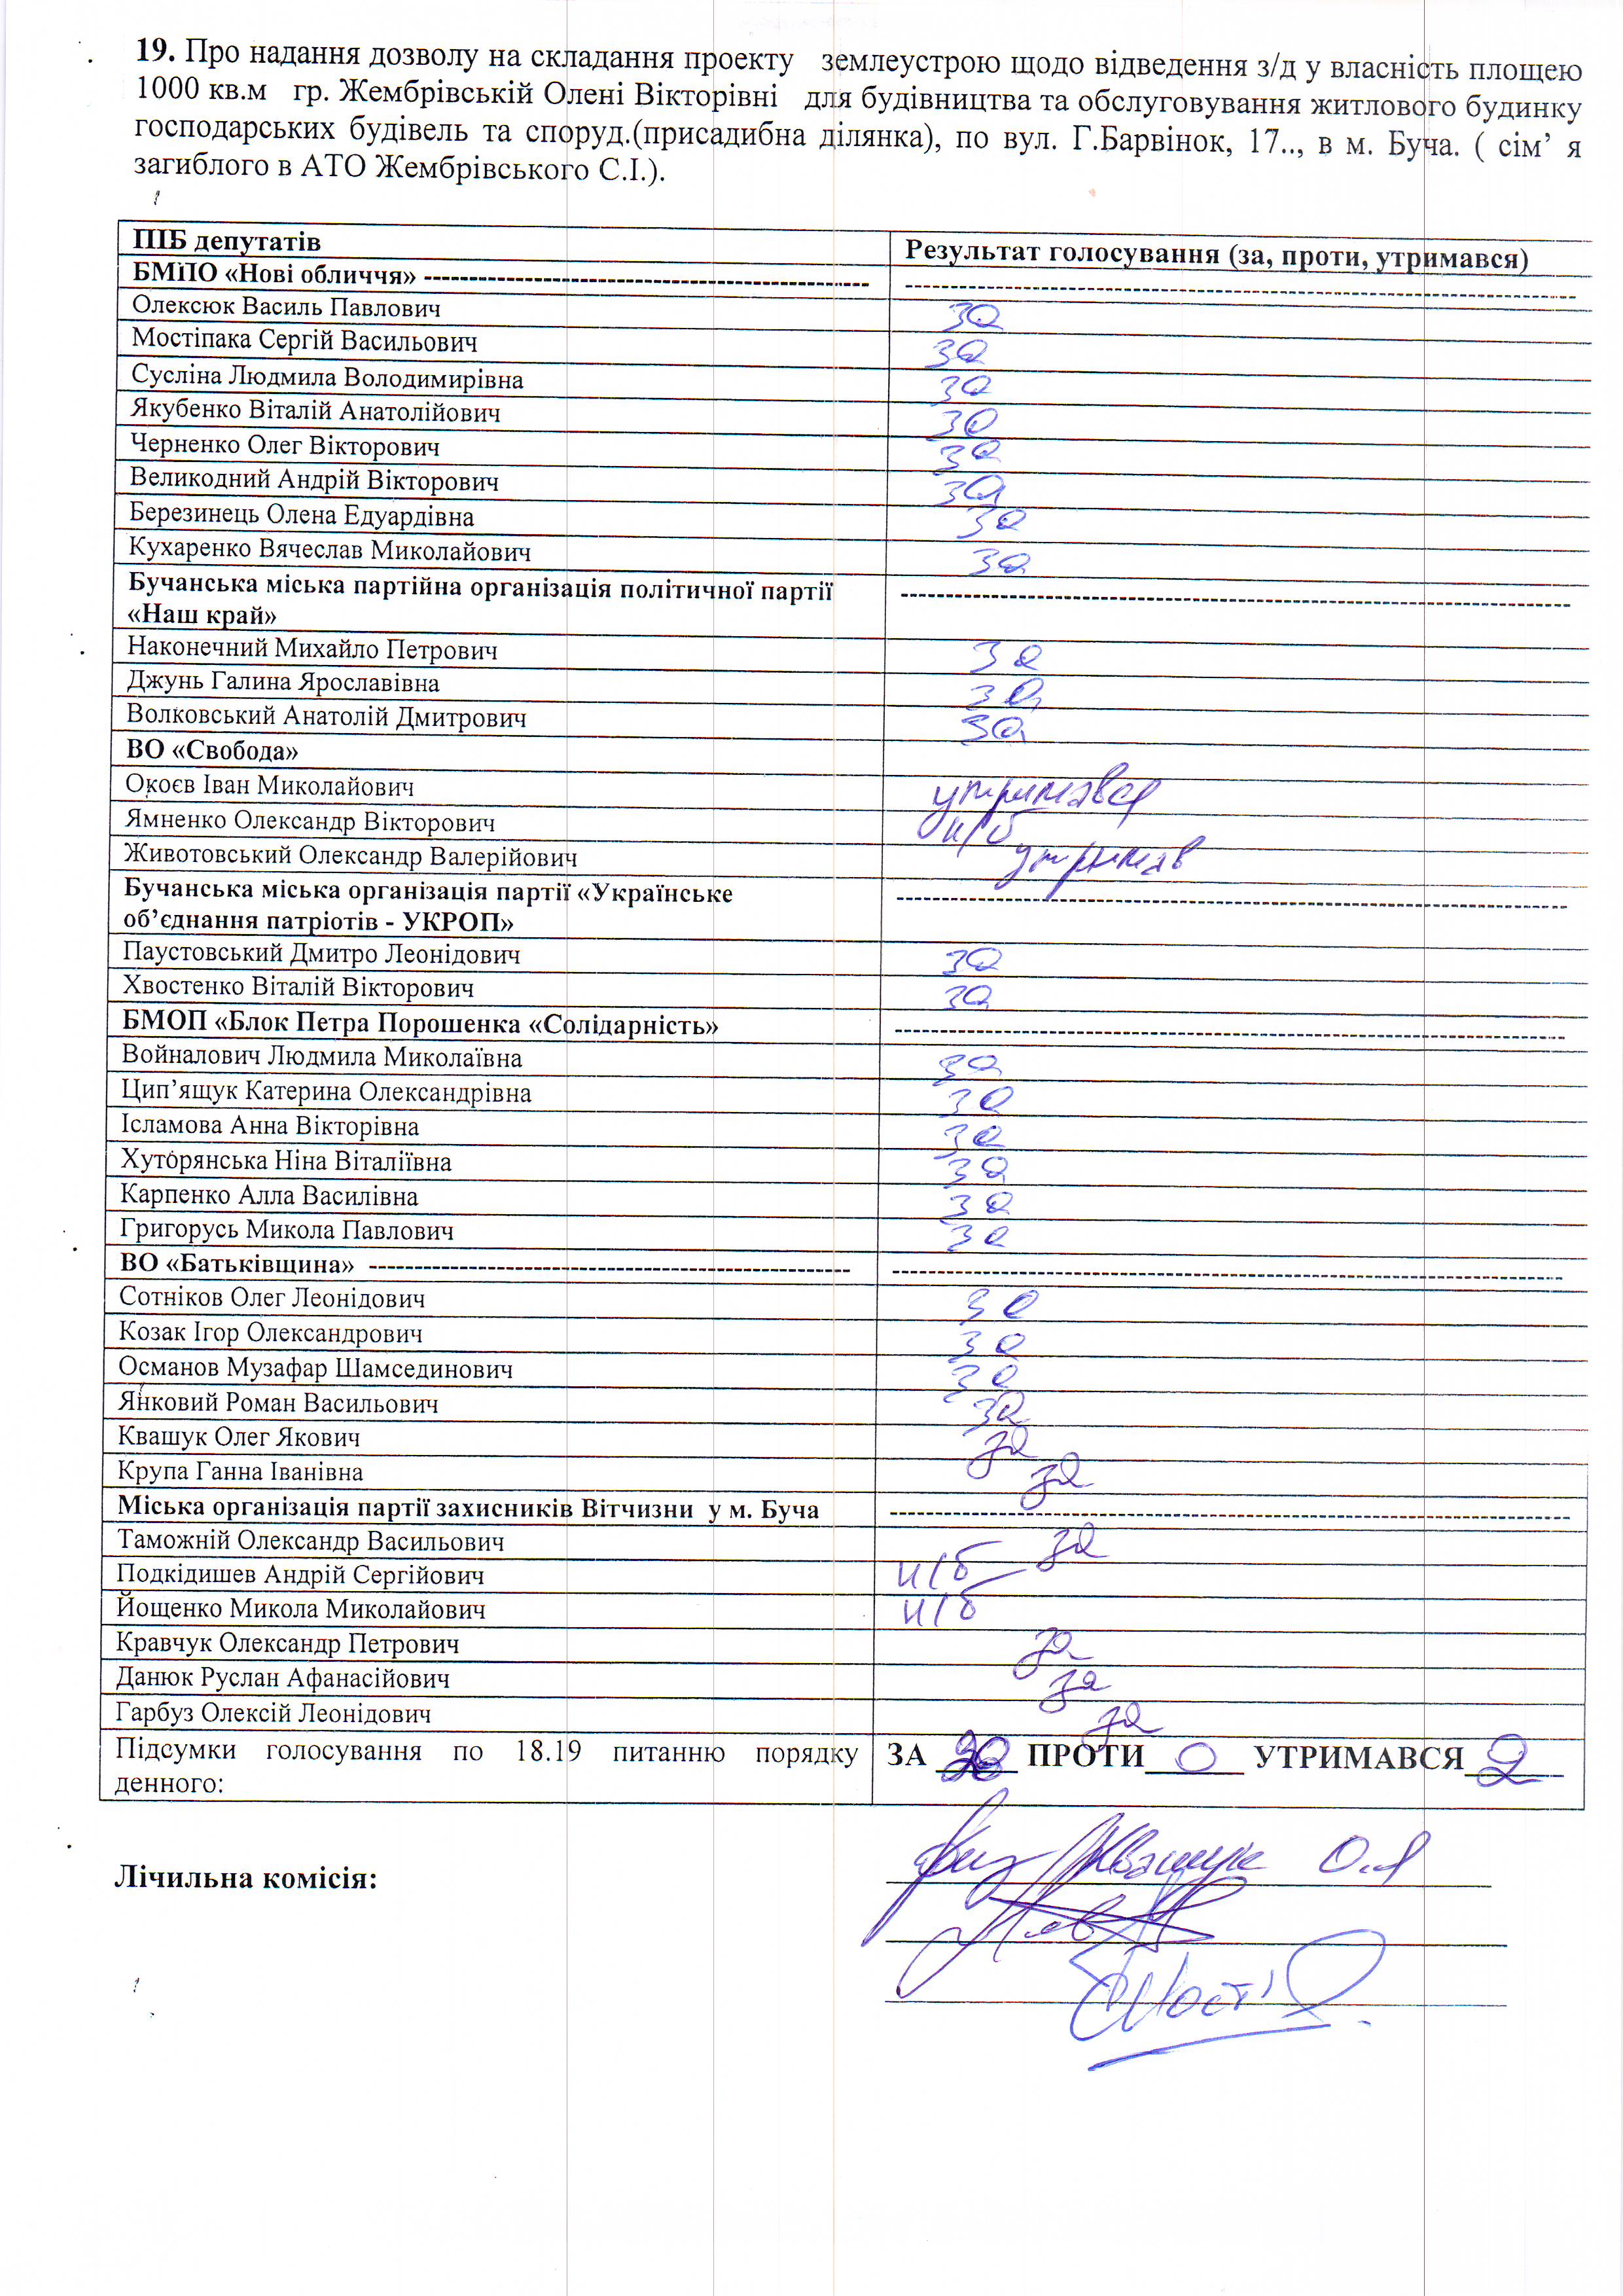 19. Про надання дозволу на складання проекту землеустрою щодо відведення з/д у власність площею
1000 кв.м гр. Жембрівській Олені Вікторівні для будівництва та обслуговування житлового будинку
господарських будівель та споруд.(присадибна ділянка), по вул. Г.Барвінок, 17.., в м. Буча. ( сім’ я
загиблого в АТО Жембрівського С.І.).
ПІБ депутатів Результат голосування (за, проти, утримався)
БМПО «Нові обличчя» ------------------------------------------------------
Олексюк Василь Павлович за
Мостіпака Сергій Васильович за
Сусліна Людмила Володимирівна за
Якубенко Віталій Анатолійович за
Черненко Олег Вікторович за
Великодний Андрій Вікторович за
Березинець Олена Едуардівна за
Кухаренко Вячеслав Миколайович за
Бучанська міська партійна організація політичної партії
«Наш край»
Наконечний Михайло Петрович за
Джунь Галина Ярославівна за
Волковський Анатолій Дмитрович за
ВО «Свобода»
Окоєв Іван Миколайович утримався
Ямненко Олександр Вікторович н/б
Животовський Олександр Валерійович утримав
Бучанська міська організація партії «Українське
об’єднання патріотів - УКРОП»
Паустовський Дмитро Леонідович за
Хвостенко Віталій Вікторович за
БМОП «Блок Петра Порошенка «Солідарність»
Войналович Людмила Миколаївна за
Цип’ящук Катерина Олександрівна за
Ісламова Анна Вікторівна за
Хуторянська Ніна Віталіївна за
Карпенко Алла Василівна за
Григорусь Микола Павлович за
ВО «Батьківщина» ------------------------------------------------------
Сотніков Олег Леонідович за
Козак Ігор Олександрович за
Османов Музафар Шамсединович за
Янковий Роман Васильович за
Квашук Олег Якович за
Крупа Ганна Іванівна за
Міська організація партії захисників Вітчизни у м. Буча
Таможній Олександр Васильович за
Подкідишев Андрій Сергійович н/б
Йощенко Микола Миколайович н/б
Кравчук Олександр Петрович за
Данюк Руслан Афанасійович за
Гарбуз Олексій Леонідович за
Підсумки голосування по 18.19 питанню порядку ЗА ПРОТИ 0 УТРИМАВСЯ 2
денного:
Квашук О.Я
Лічильна комісія: